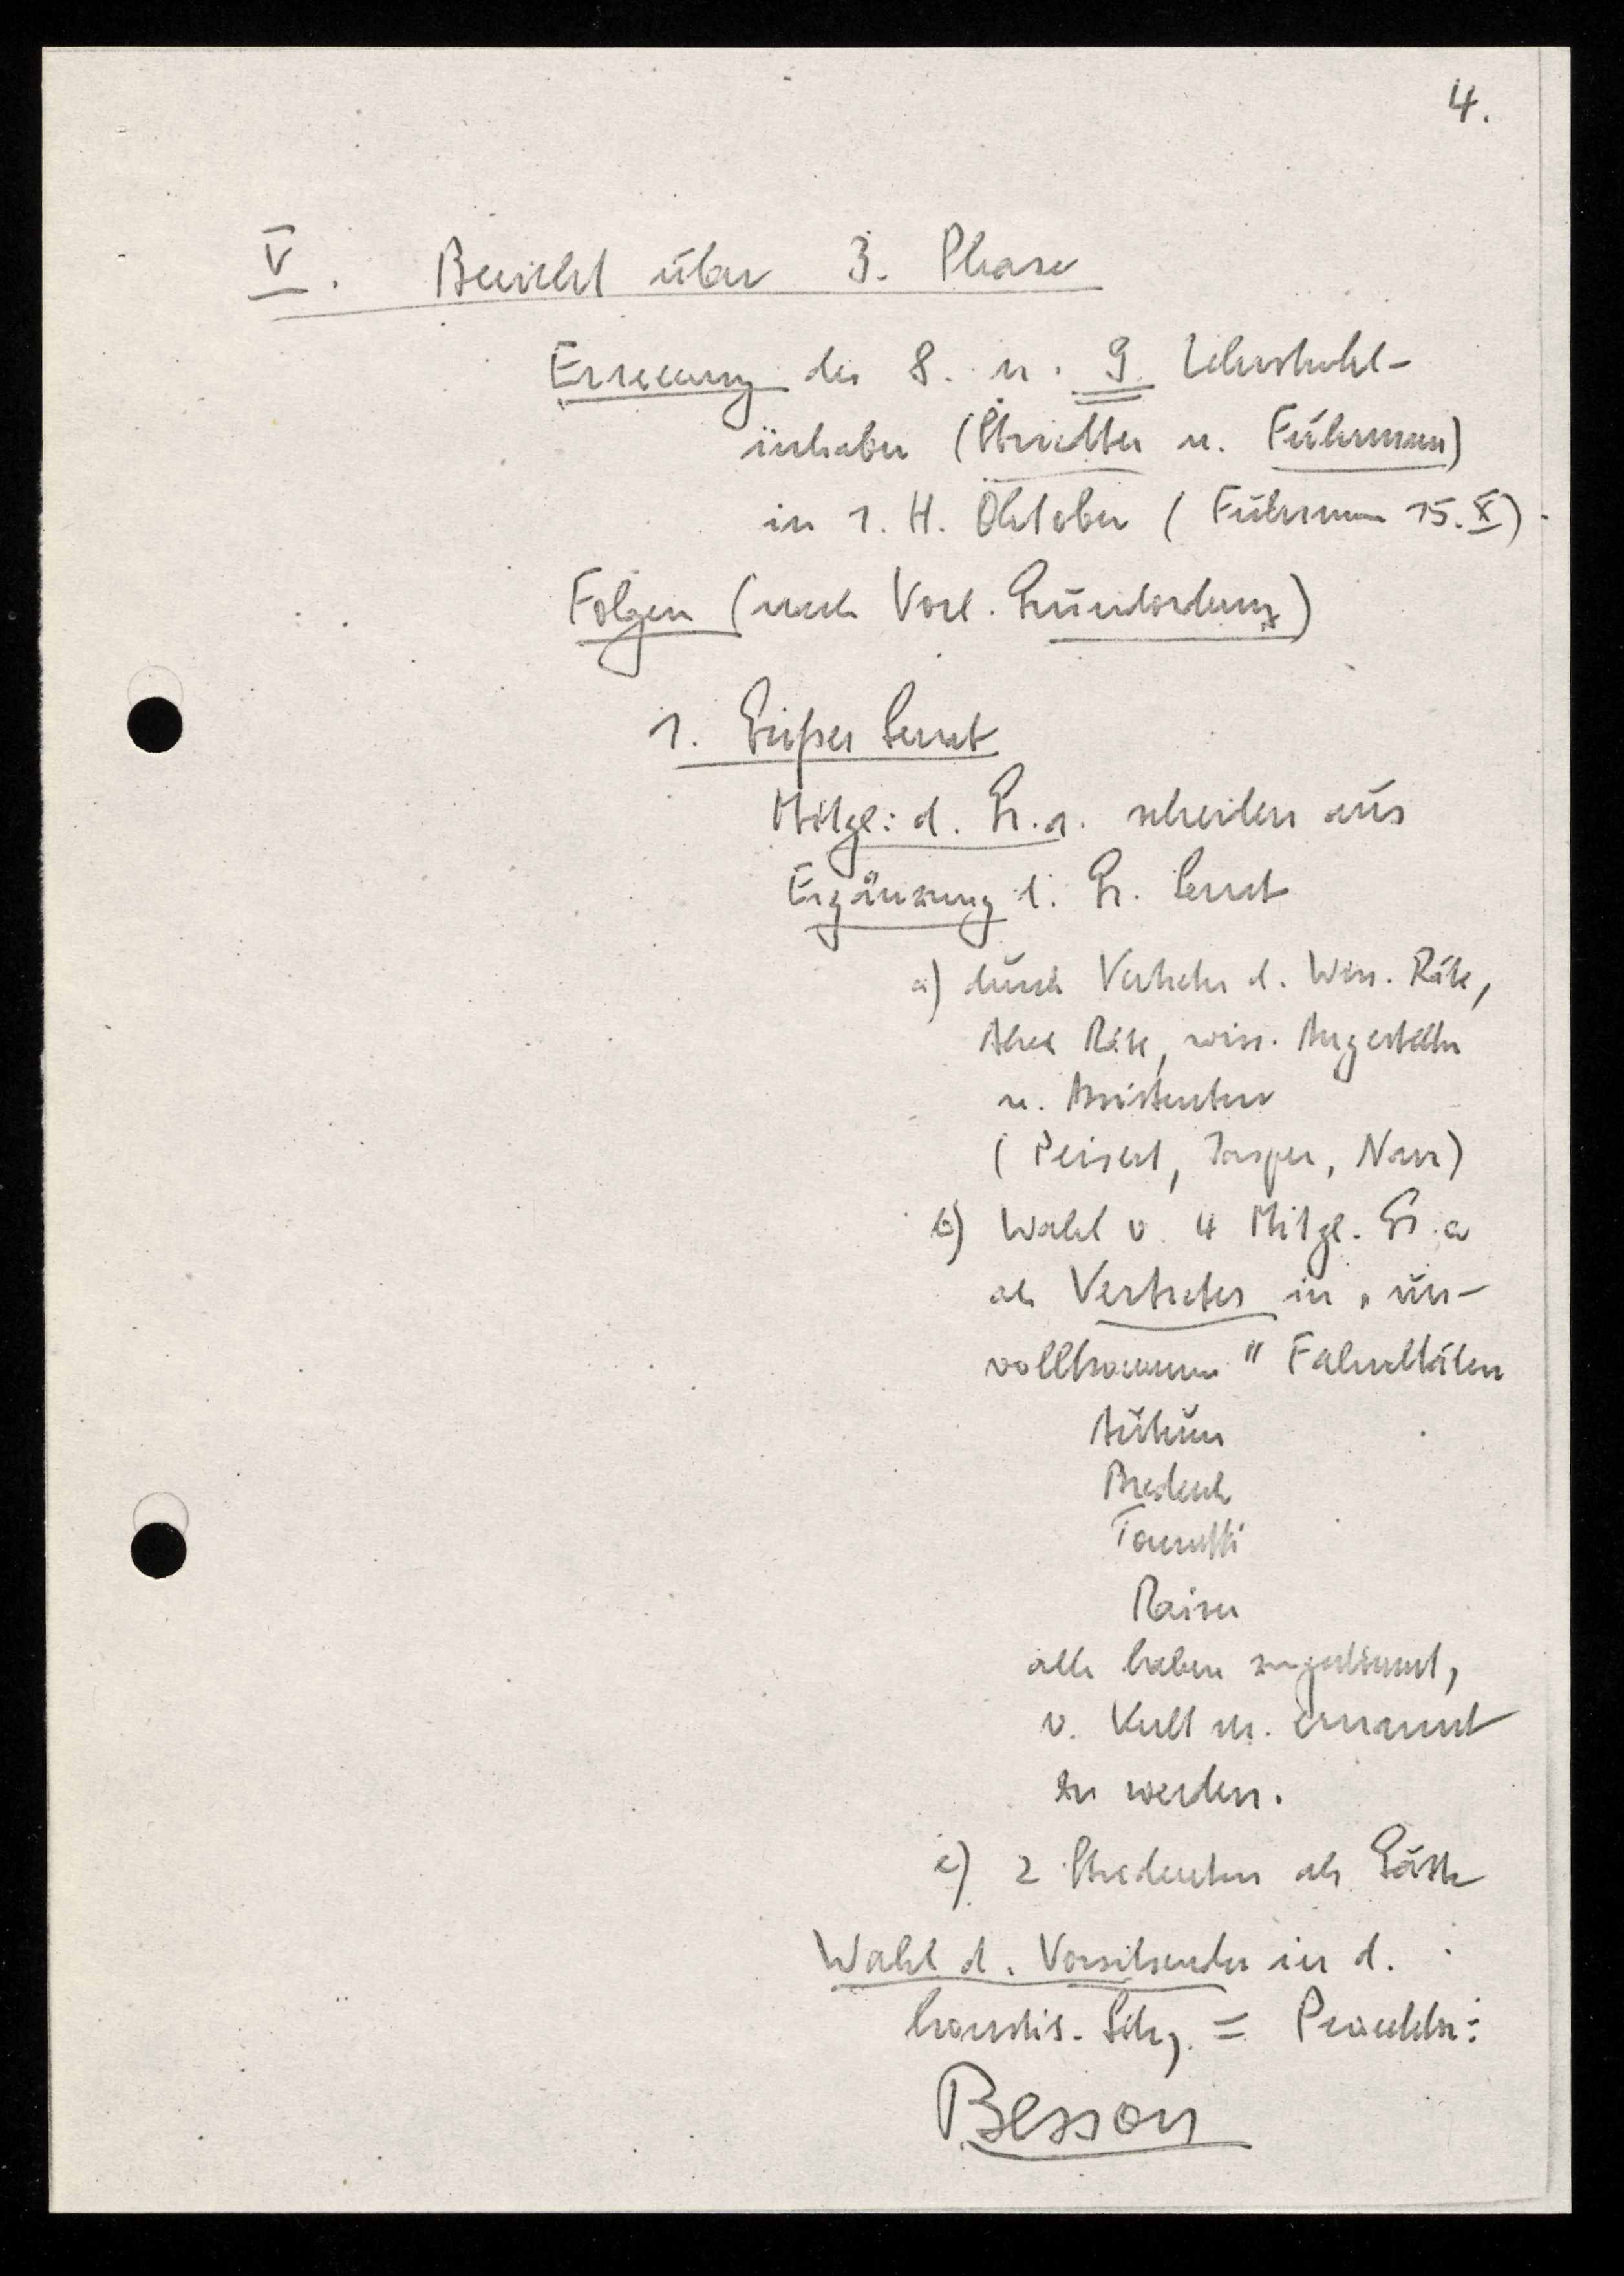 4.
V. Bericht über 3. Phase
Ernennung des 8. u. 9. Lehrstuhl-
inhaber (Striedter u. Fuhrmann)
in 1. H. Oktober (Fuhrmann 15. X)
Folgen (nach Vorl. Grundordnung)
1. Großer Senat
Mitgl: d. Gr. a. scheiden aus
Ergänzung d. Gr. Senat
a) durch Vertreter d. Wiss. Räte,
Akad Räte, wiss. Angestellten
u. Assistenten
(Peisert, Jasper, Narr)
b) Wahl v. 4 Mitgl. Gr. a
als Vertreter in "un-
vollkommen" Fakultäten
Autrum
Bredereck
Raiser
alle haben zugestimmt,
v. Kult m. ernannt
zu werden.
c) 2 Studenten als Gäste
Wahl d. Vorsitzenden in d.
konstit. Sitzg. = Prorektor:
Besson